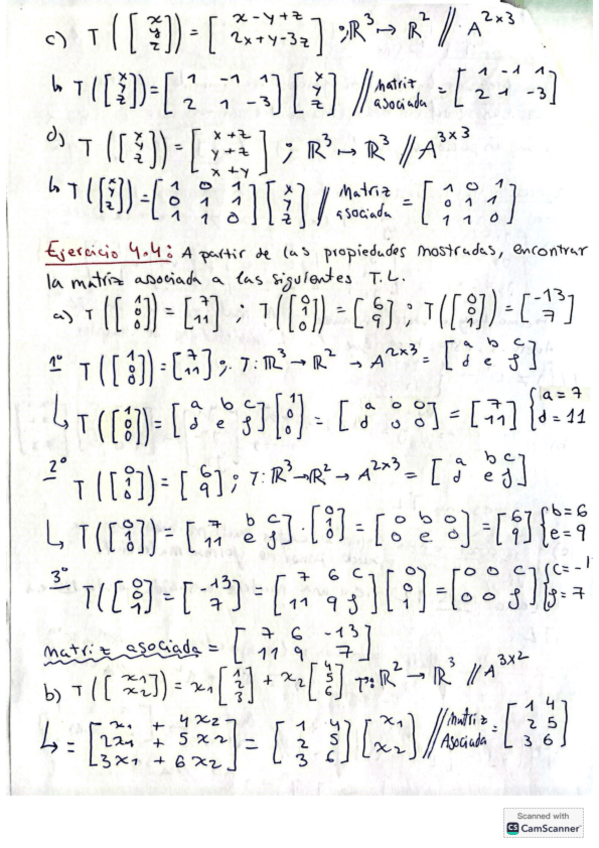 c) T([x y z]) = [x-y+z 2x+y-3z] ; ℝ³ ↦ ℝ² // A^2×3
↳ T([x y z]) = [1 -1 1 2 1 -3] [x y z] // Matriz asociada = [1 -1 1 2 1 -3]
d) T([x y z]) = [x+z y+z x+y] ; ℝ³ ↦ ℝ³ // A^3×3
↳ T([x y z]) = [1 0 1 0 1 1 1 1 0] [x y z] // Matriz asociada = [1 0 1 0 1 1 1 1 0]
Ejercicio 4.4: A partir de las propiedades mostradas, encontrar
la matriz asociada a las siguientes T.L.
a) T([1 0 0]) = [7 11] ; T([0 1 0]) = [6 9] ; T([0 0 1]) = [-13 7]
1º T([1 0 0]) = [7 11] ; T: ℝ³ → ℝ² → A^2×3 = [a b c d e f]
↳ T([1 0 0]) = [a b c d e f] [1 0 0] = [a 0 0 d 0 0] = [7 11] {a = 7 d = 11
2º T([0 1 0]) = [6 9] ; T: ℝ³ → ℝ² → A^2×3 = [a b c d e f]
↳ T([0 1 0]) = [7 b c 11 e f] · [0 1 0] = [0 b 0 0 e 0] = [6 9] {b = 6 e = 9
3º T([0 0 1]) = [-13 7] = [7 6 c 11 9 f] [0 0 1] = [0 0 c 0 0 f] {c = -1 f = 7
matriz asociada = [7 6 -13 11 9 7]
b) T([x1 x2]) = x1 [1 2 3] + x2 [4 5 6] T: ℝ² → ℝ³ // A^3×2
↳ = [x1 + 4x2 2x1 + 5x2 3x1 + 6x2] = [1 4 2 5 3 6] [x1 x2] // Matriz Asociada = [1 4 2 5 3 6]
Scanned with
CS CamScanner